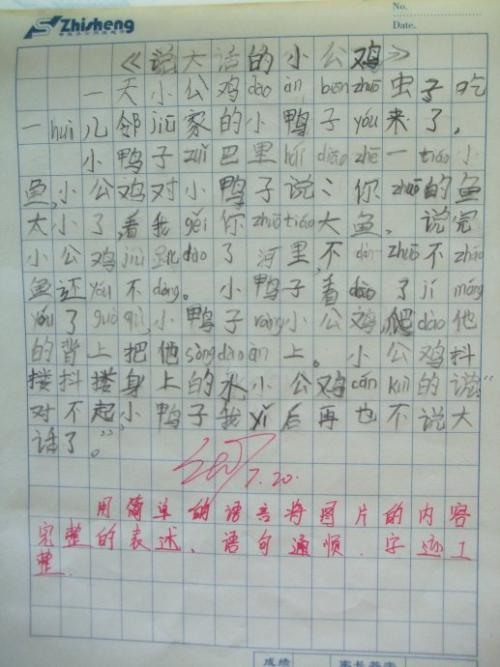 Zhisheng
No.
Date.
《说大话的小公鸡》
一天小公鸡dao àn biān zhuō虫子吃
一huì儿邻jū家的小鸭子yóu来了,
小鸭子zuǐ巴里hái diāo zhē一tiáo小
鱼,小公鸡对小鸭子说:你zhuō的鱼
太小了,看我gěi你zhuō tiáo大鱼。说完
小公鸡jiù跳dào了河里,不dàn zhuō不zháo
鱼还yóu不dòng。小鸭子看dào了jí máng
yóu了guò qù,小鸭子ràng小公鸡爬dào他
的背上把他sòng dào àn上。小公鸡抖
搂抖搂身上的水小公鸡cán kuì的说"
对不起,小鸭子我yǐ后再也不说大
话了。"
7.20.
用简单的语言将图片的内容
完整的表述、语句通顺.字迹工
整.
成绩